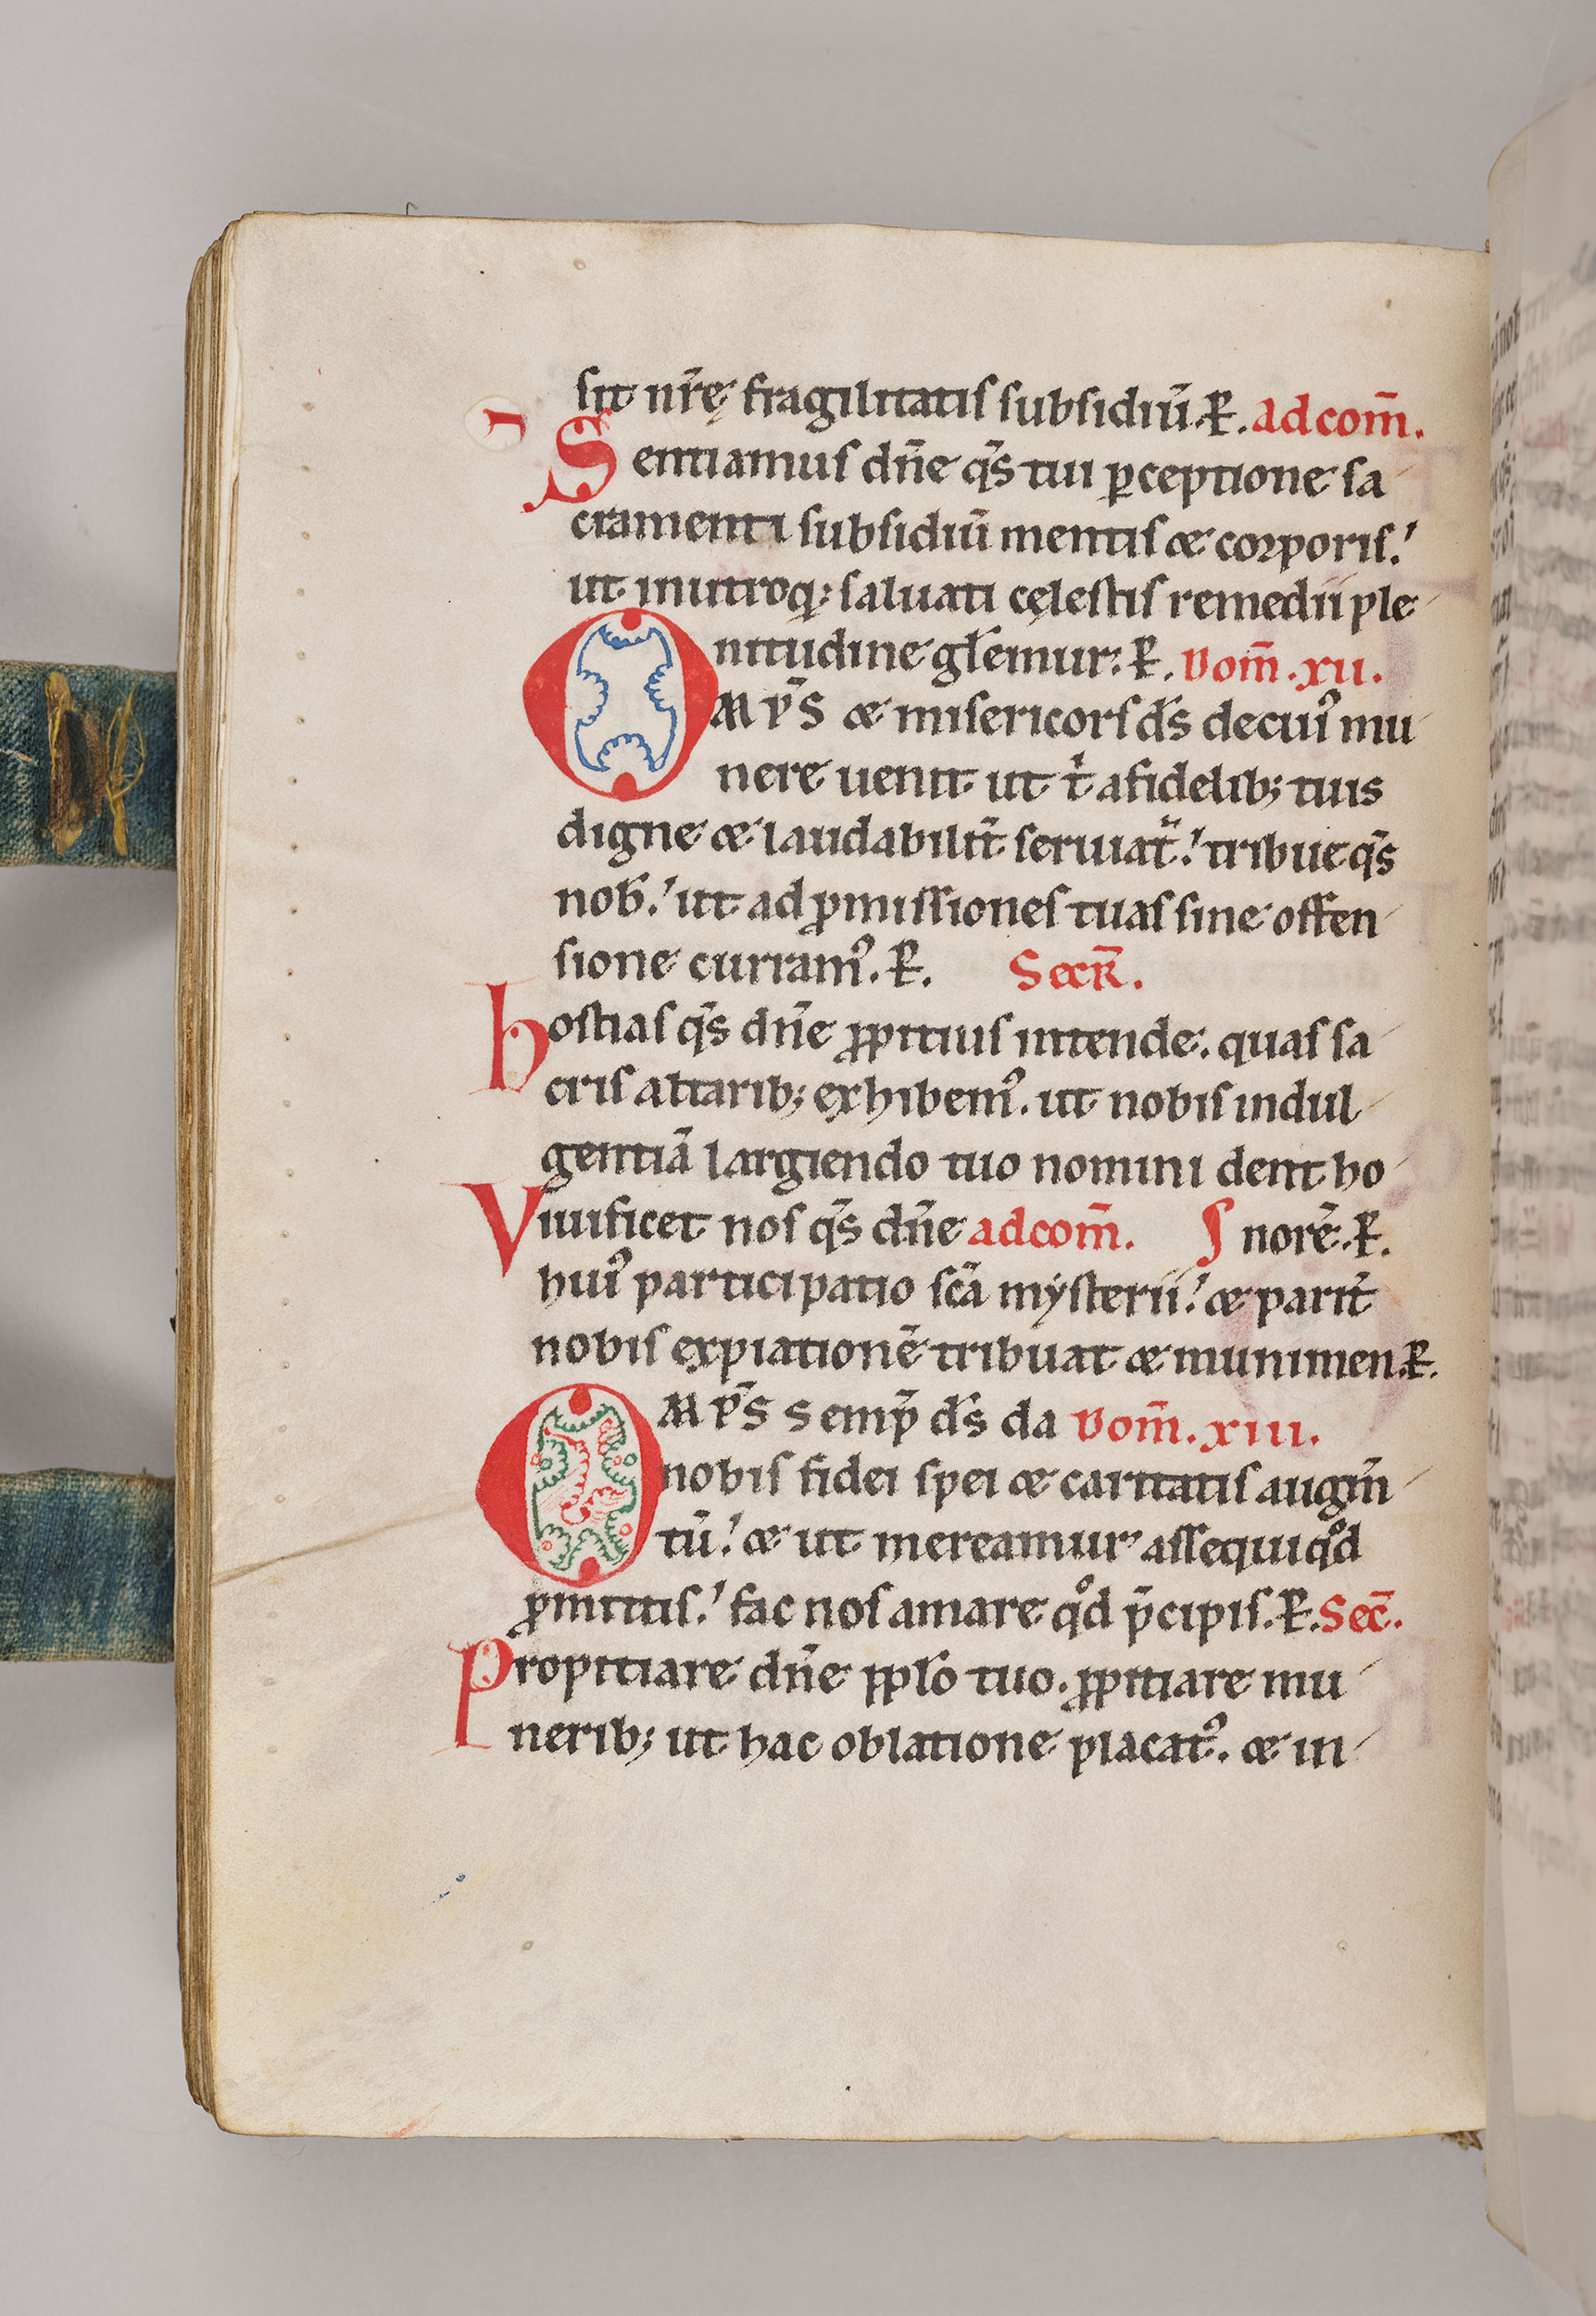 sit nr̄ę fragilitatis subsidiū. P̵. ad com̄.
Sentiamus dn̄e qs̄ tui ꝑceptione sa
cramenti subsidiū mentis & corporis.'
ut inutroq; saluati cęlestis remedii ple
nitudine gl̄emur. P̵. Dom̄. xii.
OMPS̄ & misericors ds̄ decuiꝰ mu
nere uenit ut t' afidelib; tuis
digne & laudabilit̄ seruiat̄.' tribue qs̄
nob̄.' ut ad ꝓmissiones tuas sine offen
sione curramꝰ. P̵. Secr̄.
hostias qs̄ dn̄e ꝓpitius intende. quas sa
cris altarib; exhibemꝰ. ut nobis indul
gentiā largiendo tuo nomini dent ho
Viuificet nos qs̄ dn̄e ad com̄. ſ norē. P̵.
huiꝰ participatio sc̄a mẏsterii.' & parit̄
nobis expiationē tribuat & munimen. P̵.
OMPS̄ semp̄ ds̄ da Dom̄. xiii.
nobis fidei spei & caritatis augm̄
tū.' & ut mereamur assequi qͦd
ꝓmittis.' fac nos amare qͦd p̄cipis. P̵. Sec̄.
Propitiare dn̄e ppl̄o tuo. ꝓpitiare mu
nerib; ut hac oblatione placatꝰ. & in